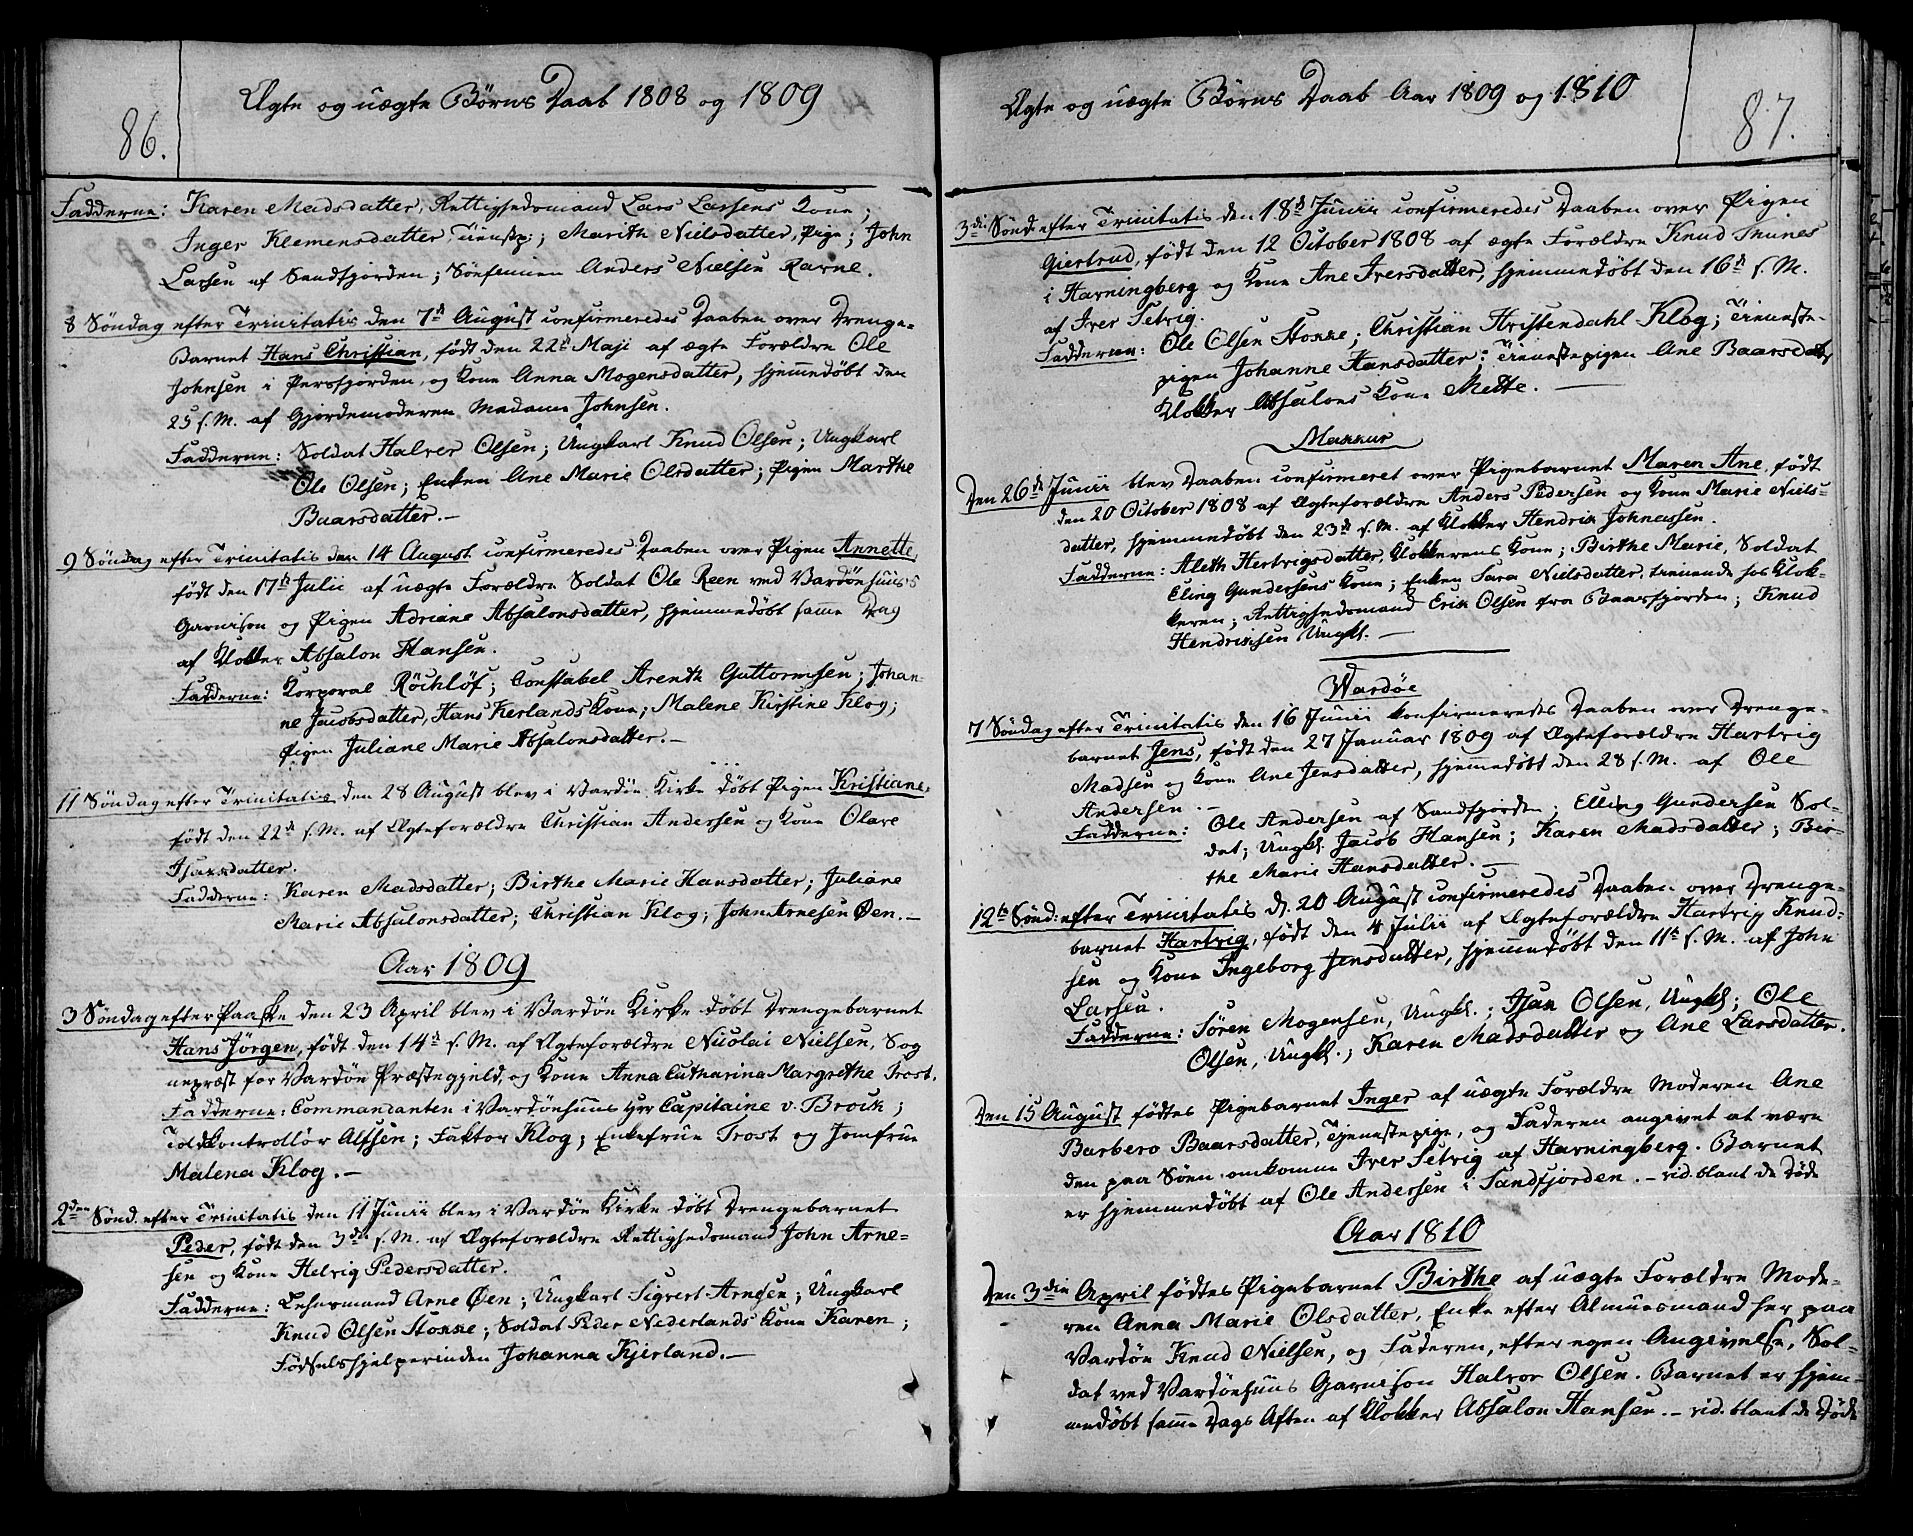 86.
Ægte og uægte Børns Daab 1808 og 1809
Fadderne: Karen Madsdatter, Rettighedsmand Lars Larsens Kone;
Inger Klemensdatter, tienstp:; Marith Nielsdatter, Pige; John
Larsen af Sandfjorden; Sönfennien Anders Nielsen Ravne.
8 Søndag efter Trinitatis den 7de August confirmeredes Daaben over Drenge-
Barnet Hans Christian, født den 22de Maji af ægte Forældre Ole
Johnsen i Persfjorden, og Kone Anna Mogensdatter, hjemmedøbt den
25 s. M. af Gjordemoderen Madame Johnsen.
Fadderne: Soldat Halvor Olsen; Ungkarl Knud Olsen; Ungkarl
Ole Olsen; Enken Ane Marie Olsdatter; Pigen Marthe
Baarsdatter.-
9 Søndag efter Trinitatis den 14 August confirmeredes Daaben over Pigen Annette,
født den 17de Julii af uægte Forældre Soldat Ole Reen ved Vardöehuus's
Garnison og Pigen Adriane Absalonsdatter, hjemmedøbt samme Dag
af Klokker Absalon Hansen.
Fadderne: Korporal Röchlöf; Constabel Arenth Guttormsen; Johan-
ne Jacobsdatter, Hans Kerlands Kone; Malene Kirstine Klog;
Pigen Juliane Marie Absalonsdatter.-
11 Søndag efter Trinitatis den 28 August blev i Vardöe Kirke døbt Pigen Kristiane,
født den 22de s. M. af Ægteforældre Christian Andersen og Kone Olave
Isaksdatter.
Fadderne: Karen Madsdatter; Birthe Marie Hansdatter; Juliane
Marie Absalonsdatter; Christian Klog; John Arnesen Øen.-
Aar 1809
3 Søndag efter Paaske den 23 April blev i Vardöe Kirke døbt Drengebarnet
Hans Jörgen, født den 14de s. M. af Ægteforældre Nicolai Nielsen, Sog
nepræst for Vardöe Præstegjeld, og Kone Anna Catharina Margrethe Trost.
Fadderne: Commandanten i Vardöehuus Hrr Capitaine v. Brock;
Toldkontrollör Altsen; Faktor Klog; Enkefrue Trost og Jomfrue
Malena Klog.-
2den Sönd. efter Trinitatis den 11 Junii blev i Vardöe Kirke døbt Drengebarnet
Peder, født den 3die s. M. af Ægteforældre Rettighedsmand John Arne-
sen og Kone Helvig Pedersdatter.
Fadderne: Lehnsmand Arne Øen; Ungkarl Sigvert Arnesen; Ungkarl
Knud Olsen Stokke; Soldat Peder Nederlands Kone Karen;
Födselshjelperinden Johanna Kjerland.-
Ægte og uægte Børns Daab Aar 1809 og 1810
87.
3die Sönd: efter Trinitatis den 18de Junii confirmeredes Daaben over Pigen
Giertrud, født den 12 October 1808 af ægte Forældre Knud Thunes
i Havningberg og Kone Ane Iversdatter, hjemmedøbt den 16de s. M.
af Iver Setvig.
Fadderne: Ole Olsen Stokke; Christian Hvistendahl Klog; Tieneste-
pigen Johanne Hansdatter; Tienestepigen Ane Baarsdatter
Klokker Absalons Kone Mette.
Makkur
Den 26de Junii blev Daaben confirmeret over Pigebarnet Maren Ane, født
den 20 October 1808 af Ægteforældre Anders Pedersen og Kone Marie Niels-
datter, hjemmedøbt den 23de s. M. af Klokker Hendrik Johnassen.
Fadderne: Aleth Hertvigsdatter, Klokkerens Kone; Birthe Marie, Soldat
Eling Gundersens Kone; Enken Sara Nielsdatter, tienende hos Klok-
keren; Rettighedsmand Erik Olsen fra Baasfjorden; Knud
Hendriksen Ungkl.-
Wardöe
7 Søndag efter Trinitatis den 16 Junii konfirmeredes Daaben over Drenge-
barnet Jens, født den 27 Januar 1809 af Ægteforældre Hartvig
Madsen og Kone Ane Jensdatter, hjemmedøbt den 28 s. M. af Ole
Andersen.-
Fadderne: Ole Andersen af Sandfjorden; Elling Gundersen Sol-
dat; Ungkl. Jacob Hansen; Karen Madsdatter; Bir-
the Marie Hansdatter.-
12te Sönd: efter Trinitatis d. 20 August confirmeredes Daaben over Drenge-
barnet Hartvig, født den 4 Julii af Ægteforældre Hartvig Knud-
sen og Kone Ingeborg Jensdatter, hjemmedøbt den 11te s. M. af John
Larsen.
Fadderne: Sören Mogensen, Ungkl.; Isak Olsen, Ungkl; Ole
Olsen, Ungkl.; Karen Madsdatter og Ane Larsdatter.
Den 15 August fødtes Pigebarnet Inger af uægte Forældre Moderen Ane
Barbero Baarsdatter, Tjenestepige, og Faderen angivet at være
den paa Søen omkomne Iver Setvig af Havningberg. Barnet
er hjemmedøbt af Ole Andersen i Sandfjorden.- vid. blant de Døde
Aar 1810
Den 3die April fødtes Pigebarnet Birthe af uægte Forældre Mode-
ren Anna Marie Olsdatter, Enke efter Almuesmand her paa
Vardöe Knud Nielsen, og Faderen, efter egen Angivelse, Sol-
dat ved Vardöehuus Garnison Halvor Olsen. Barnet er hjem-
medøbt samme Dags Aften af Klokker Absalon Hansen.- vid. blant de Døde